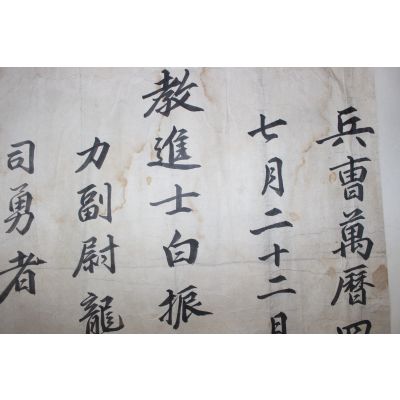 兵曹萬曆四
七月二十二日
教進士白振
力副尉龍
司勇者